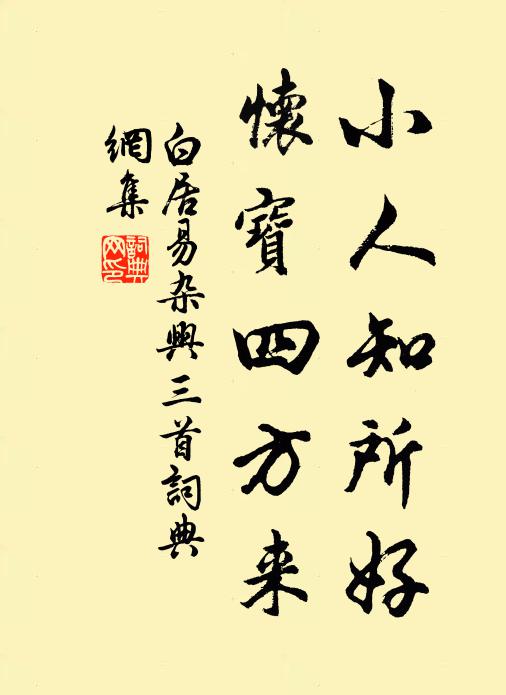 小人知所好
懷寶四方来
白居易杂興三首詞典
網集
詞典
网印